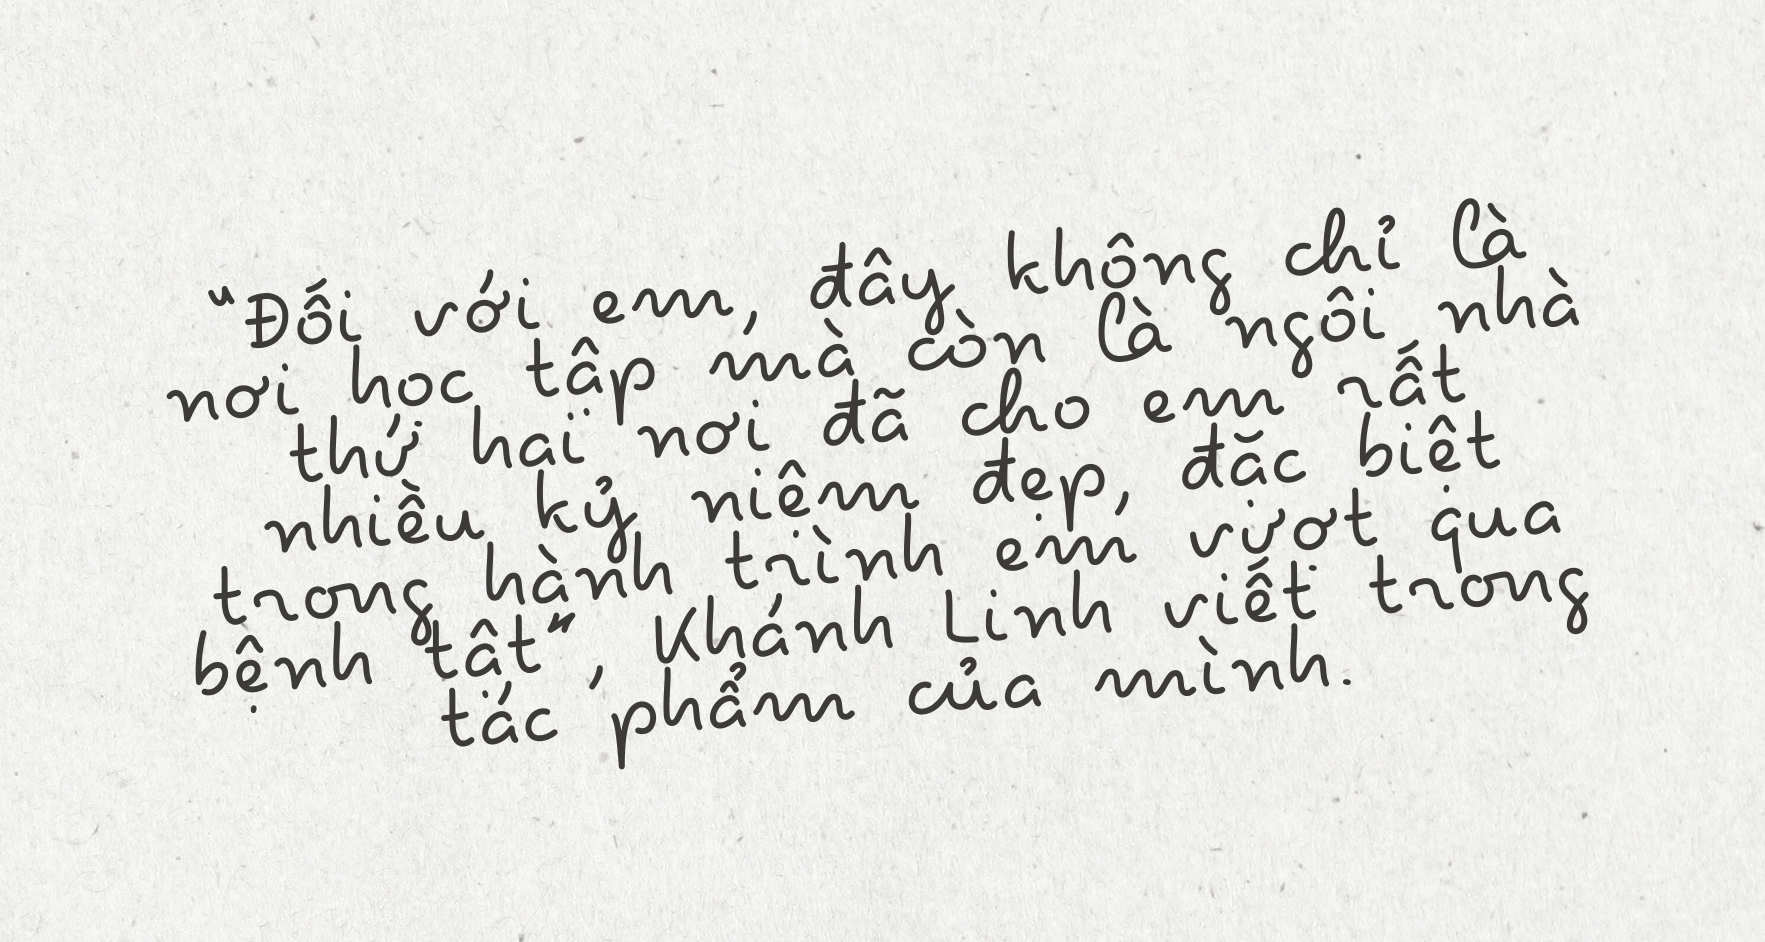 "Đối với em, đây không chỉ là
nơi học tập mà còn là ngôi nhà
thứ hai nơi đã cho em rất
nhiều kỷ niệm đẹp, đặc biệt
trong hành trình em vượt qua
bệnh tật", Khánh Linh viết trong
tác phẩm của mình.